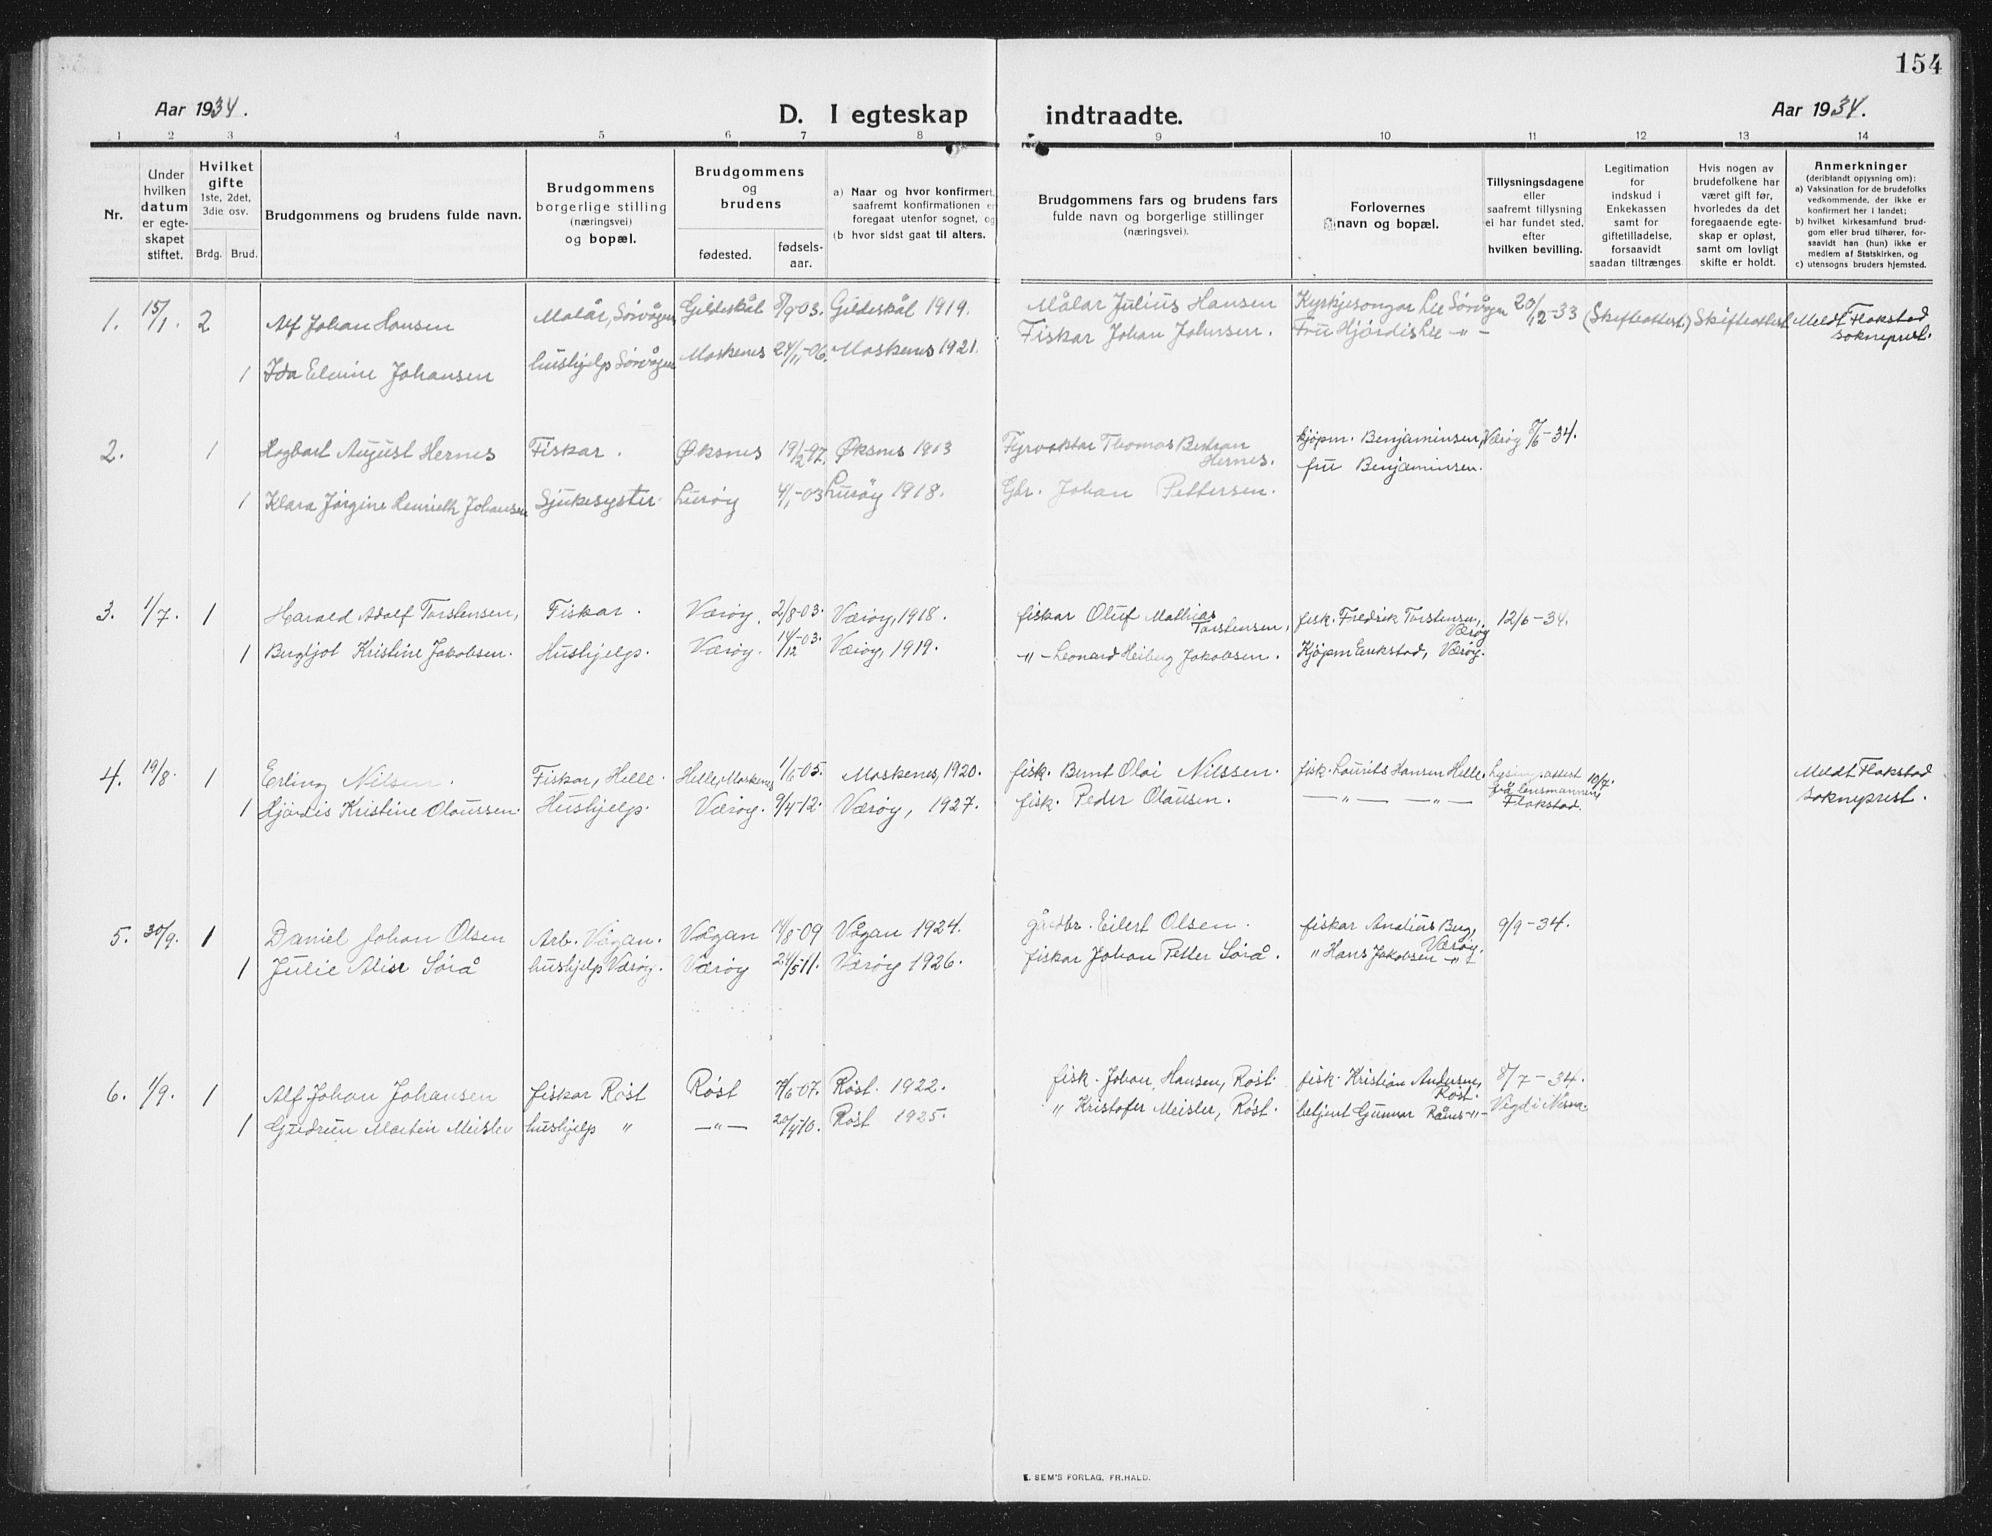 154
Aar 1934. D. I egteskap indtraadte. Aar 1934.
1 2 3 4 5 6 7 8 9 10 11 12 13 14
Nr.
Under hvilken datum er egteskapet stiftet.
Hvilket gifte 1ste, 2det, 3die osv.
Brdg. Brud.
Brudgommens og brudens fulde navn.
Brudgommens borgerlige stilling (næringsvei) og bopæl.
Brudgommens og brudens
fødested. fødselsaar.
a) Naar og hvor konfirmert, saafremt konfirmationen er foregaat utenfor sognet, og
(b hvor sidst gaat til alters.
Brudgommens fars og brudens fars fulde navn og borgerlige stillinger (næringsvei).
Forlovernes navn og bopæl.
Tillysningsdagene eller saafremt tillysning ei har fundet sted, efter hvilken bevilling.
Legitimation for indskud i Enkekassen samt for giftetilladelse, forsaavidt saadan tiltrænges
Hvis nogen av brudefolkene har været gift før, hvorledes da det foregaaende egteskap er opløst, samt om lovligt skifte er holdt.
Anmerkninger (deriblandt opjysning om):
a) Vaksination for de brudefolks vedkommende, der ikke er konfirmert her i landet;
b) hvilket kirkesamfund brudgom eller brud tilhører, forsaavidt han (hun) ikke er medlem af Statskirken, og
c) utensogns bruders hjemsted.
1. 15/1. 2 Alf Johan Hansen Malår, Sørvågen Gildeskål 8/9-03. Gildeskål 1919. Målar Julius Hansen Kyrkjesongar Lie Sørvågen 20/12-33 (Skifteattest.) Skifteattest Meldt Flakstad sokneprest.
1 Ida Elvine Johansen hushjelp Sørvågen Moskenes 24/11-06. Moskenes 1921. Fiskar Johan Johnsen. Fru Hjördis Lie -"-
2. 1 Hagbart August Hernes Fiskar. Øksnes 19/2-97. Øksnes 1913 Fyrvaktar Thomas Hernes. kjøpm. Benjaminsen, Værøy 7/6-34.
1 Klara Jørgine Henriette Johansen Sjukesyster. Lurøy 4/1-03 Lurøy 1918. Gbr. Johan Pettersen. fru Benjaminsen.
3. 1/7. 1 Harald Adolf Torstensen, Fiskar. Værøy. 2/8-03. Værøy, 1918. fiskar Oluf Mathias Torstensen, fisk. Fredrik Torstensen, Værøy 12/6-34.
1 Bergljot Kristine Jakobsen. Hushjelp. Værøy. 14/12-03. Værøy, 1919. -"- Leonard Heiberg Jakobsen. Kjøpm Erikstad, Værøy.
4. 19/8. 1 Erling Nilsen. Fiskar, Helle. Helle, Moskenes 1/6-05. Moskenes, 1920. fisk. Bernt Olai Nilssen. fisk. Laurits Hansen Helle. Lysingsattest 10/7. frå lensmannen, Flakstad. Meldt Flakstad sokneprest.
1 Hjördis Kristine Olaussen. Hushjelp. Værøy. 9/4-12. Værøy, 1927. fisk. Peder Olausen. -"- -"-
5. 30/9. 1 Daniel Johan Olsen Arb. Vågan. Vågan 14/8-09 Vågan 1924. gårdbr. Eilert Olsen. fiskar Analius Berg, Værøy. 9/9-34.
1 Julie Alise Sørå hushjelp Værøy. Værøy 24/5-11. Værøy 1926. fiskar Johan Petter Sørå. " Hans Jakobsen -"-
6. 1/9. 1 Alf Johan Johansen fiskar Røst Røst 7/6-07. Røst. 1922. fisk. Johan Hansen, Røst. fisk. Kristian Andersen, Røst. 8/7-34.
1 Gudrun Martin Meisler hushjelp " -"- 20/4-10. Røst 1925. " Kristofer Meisler, Røst. betjent Gunnar -"- Vigd i
E. SEM'S FORLAG, FR.HALD.